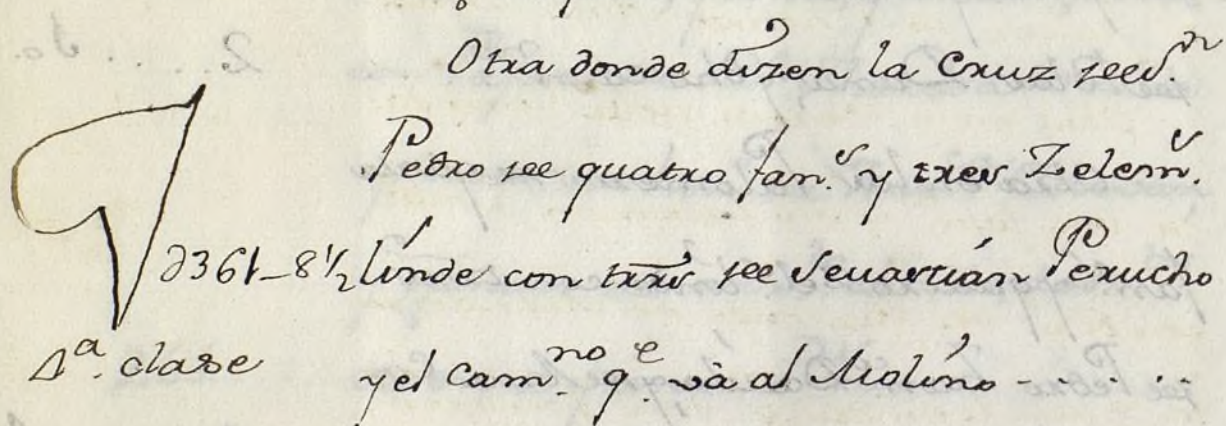 Otra donde dizen la Cruz de d.ⁿ
Pedro de quatro fan.ˢ y tres Zelem.ˢ
d361-8½ linde con trrs de Sevastián Perucho
1ª. clase y el Cam.ⁿᵒ q.ᵉ và al Molino - . . . .